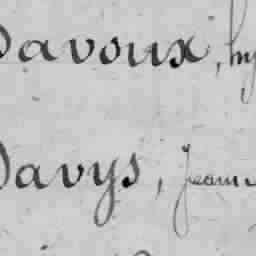 Davoux, hy
Davys, Jeann